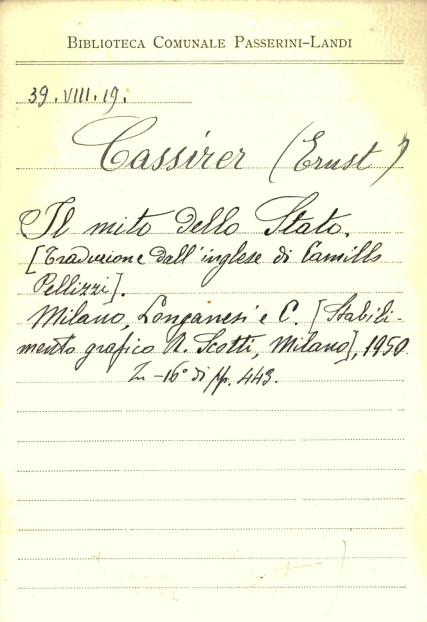 BIBLIOTECA COMUNALE PASSERINI-LANDI
39.VIII.19.
Cassirer (Ernst)
Il mito dello Stato.
[Traduzione dall'inglese di Camillo
Pellizzi].
Milano, Longanesi e C. [Stabili-
mento grafico R. Scotti, Milano], 1950
In-16° di pp. 443.